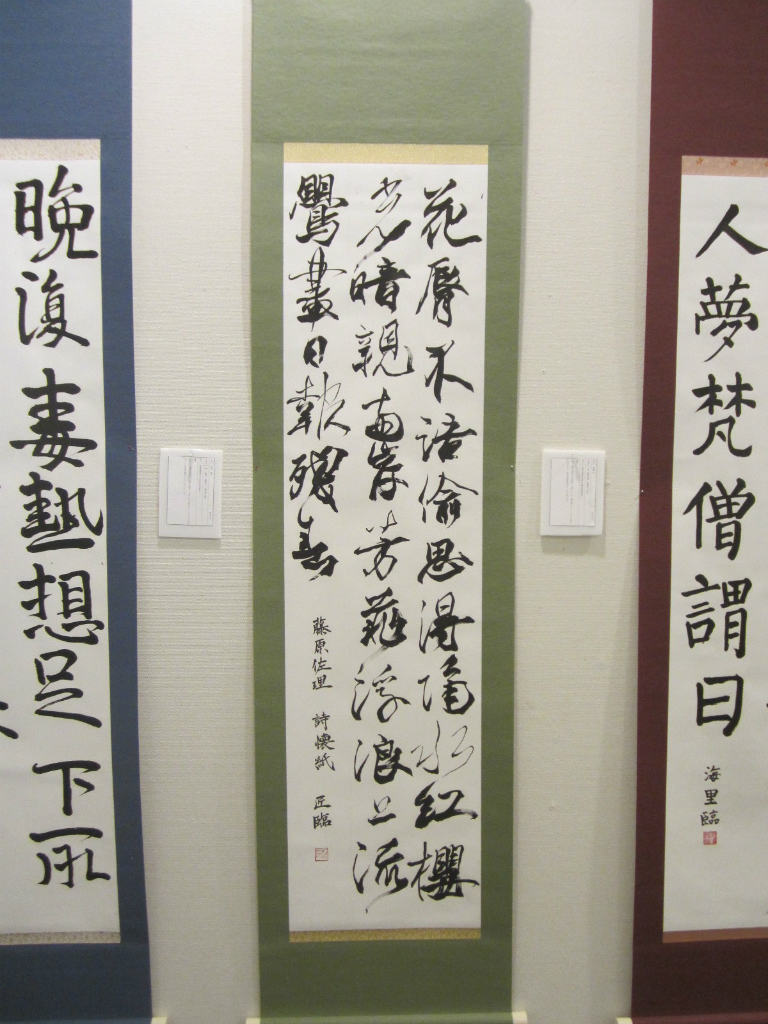 人夢梵僧謂曰
海里臨
花脣不語偸思得隔水紅櫻
光暗親両岸芳菲浮浪上流
鶯盡日報殘春
藤原佐理 詩懐紙 匠臨
晩復毒熱想足下所